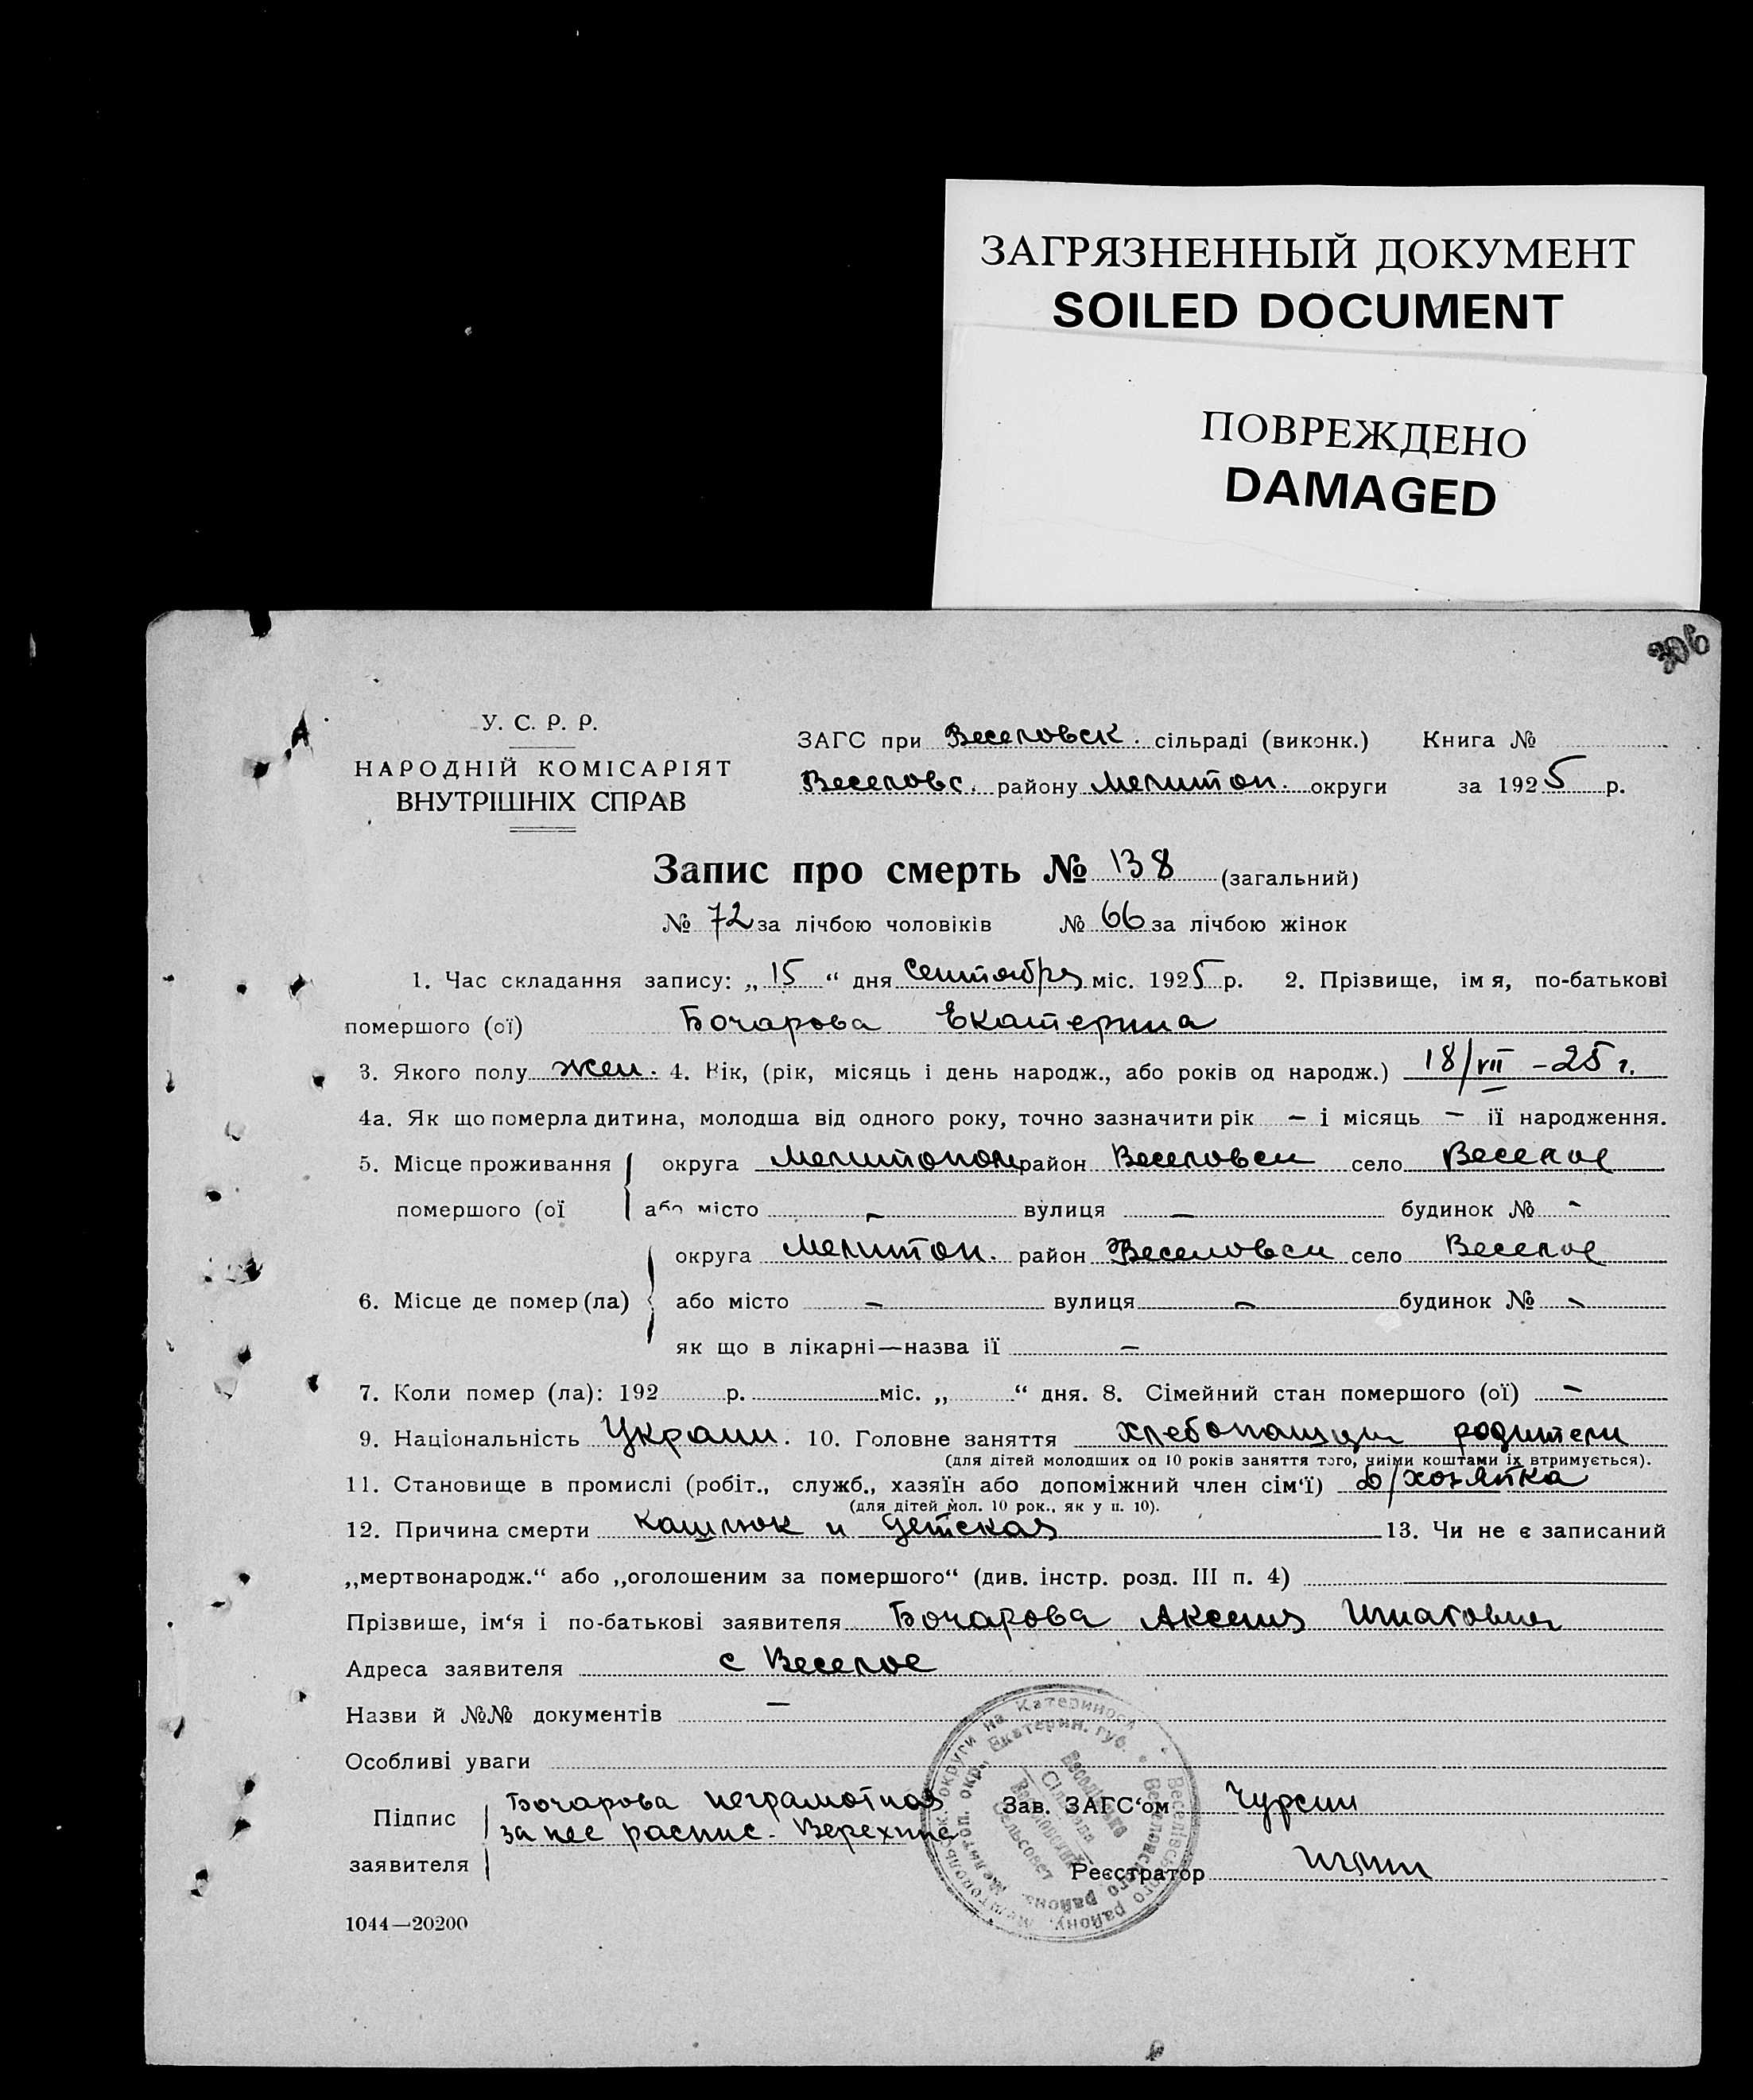 ЗАГРЯЗНЕННЫЙ ДОКУМЕНТ
SOILED DOCUMENT
ПОВРЕЖДЕНО
DAMAGED
306
У. С. Р. Р.
НАРОДНІЙ КОМІСАРІЯТ
ВНУТРІШНІХ СПРАВ
ЗАГС при Веселовск. сільраді (виконк.) Книга №
Веселовс. району Мелитоп. округи за 1925 р.
Запис про смерть № 138 (загальний)
№ 72 за лічбою чоловіків № 66 за лічбою жінок
1. Час складання запису: „15“ дня Сентября міс. 1925 р. 2. Прізвище, імя, по-батькові
помершого (ої) Бочарова Екатерина
3. Якого полу жен. 4. Вік, (рік, місяць і день народж., або років од народж.) 18/VII – 25 г.
4а. Як що померла дитина, молодша від одного року, точно зазначити рік – і місяць – її народження.
5. Місце проживання округа Мелитопол район Веселовск село Веселое
помершого (ої або місто – вулиця – будинок № -
округа Мелитоп. район Веселовск село Веселое
6. Місце де помер (ла) або місто – вулиця – будинок № -
як що в лікарні—назва її –
7. Коли помер (ла): 192 р. міс. „ “ дня. 8. Сімейний стан помершого (ої) –
9. Національність Украин. 10. Головне заняття хлебопашци родители
(для дітей молодших од 10 років заняття того, чиіми коштами їх втримується).
11. Становище в промислі (робіт., служб., хазяїн або допоміжний член сім‘ї) д/хозяйка
(для дітей мол. 10 рок., як у п. 10).
12. Причина смерти кашлюк и детская 13. Чи не є записаний
„мертвонародж.“ або „оголошеним за помершого“ (див. інстр. розд. III п. 4)
Прізвише, ім‘я і по-батькові заявителя Бочарова Аксения Игнатовна
Адреса заявителя с Веселое
Назви й №№ документів –
Особливі уваги
Підпис заявителя Бочарова неграмотная
за нее распис. Верехина
Зав. ЗАГС‘ом Чурсин
Реєстратор
1044—20200